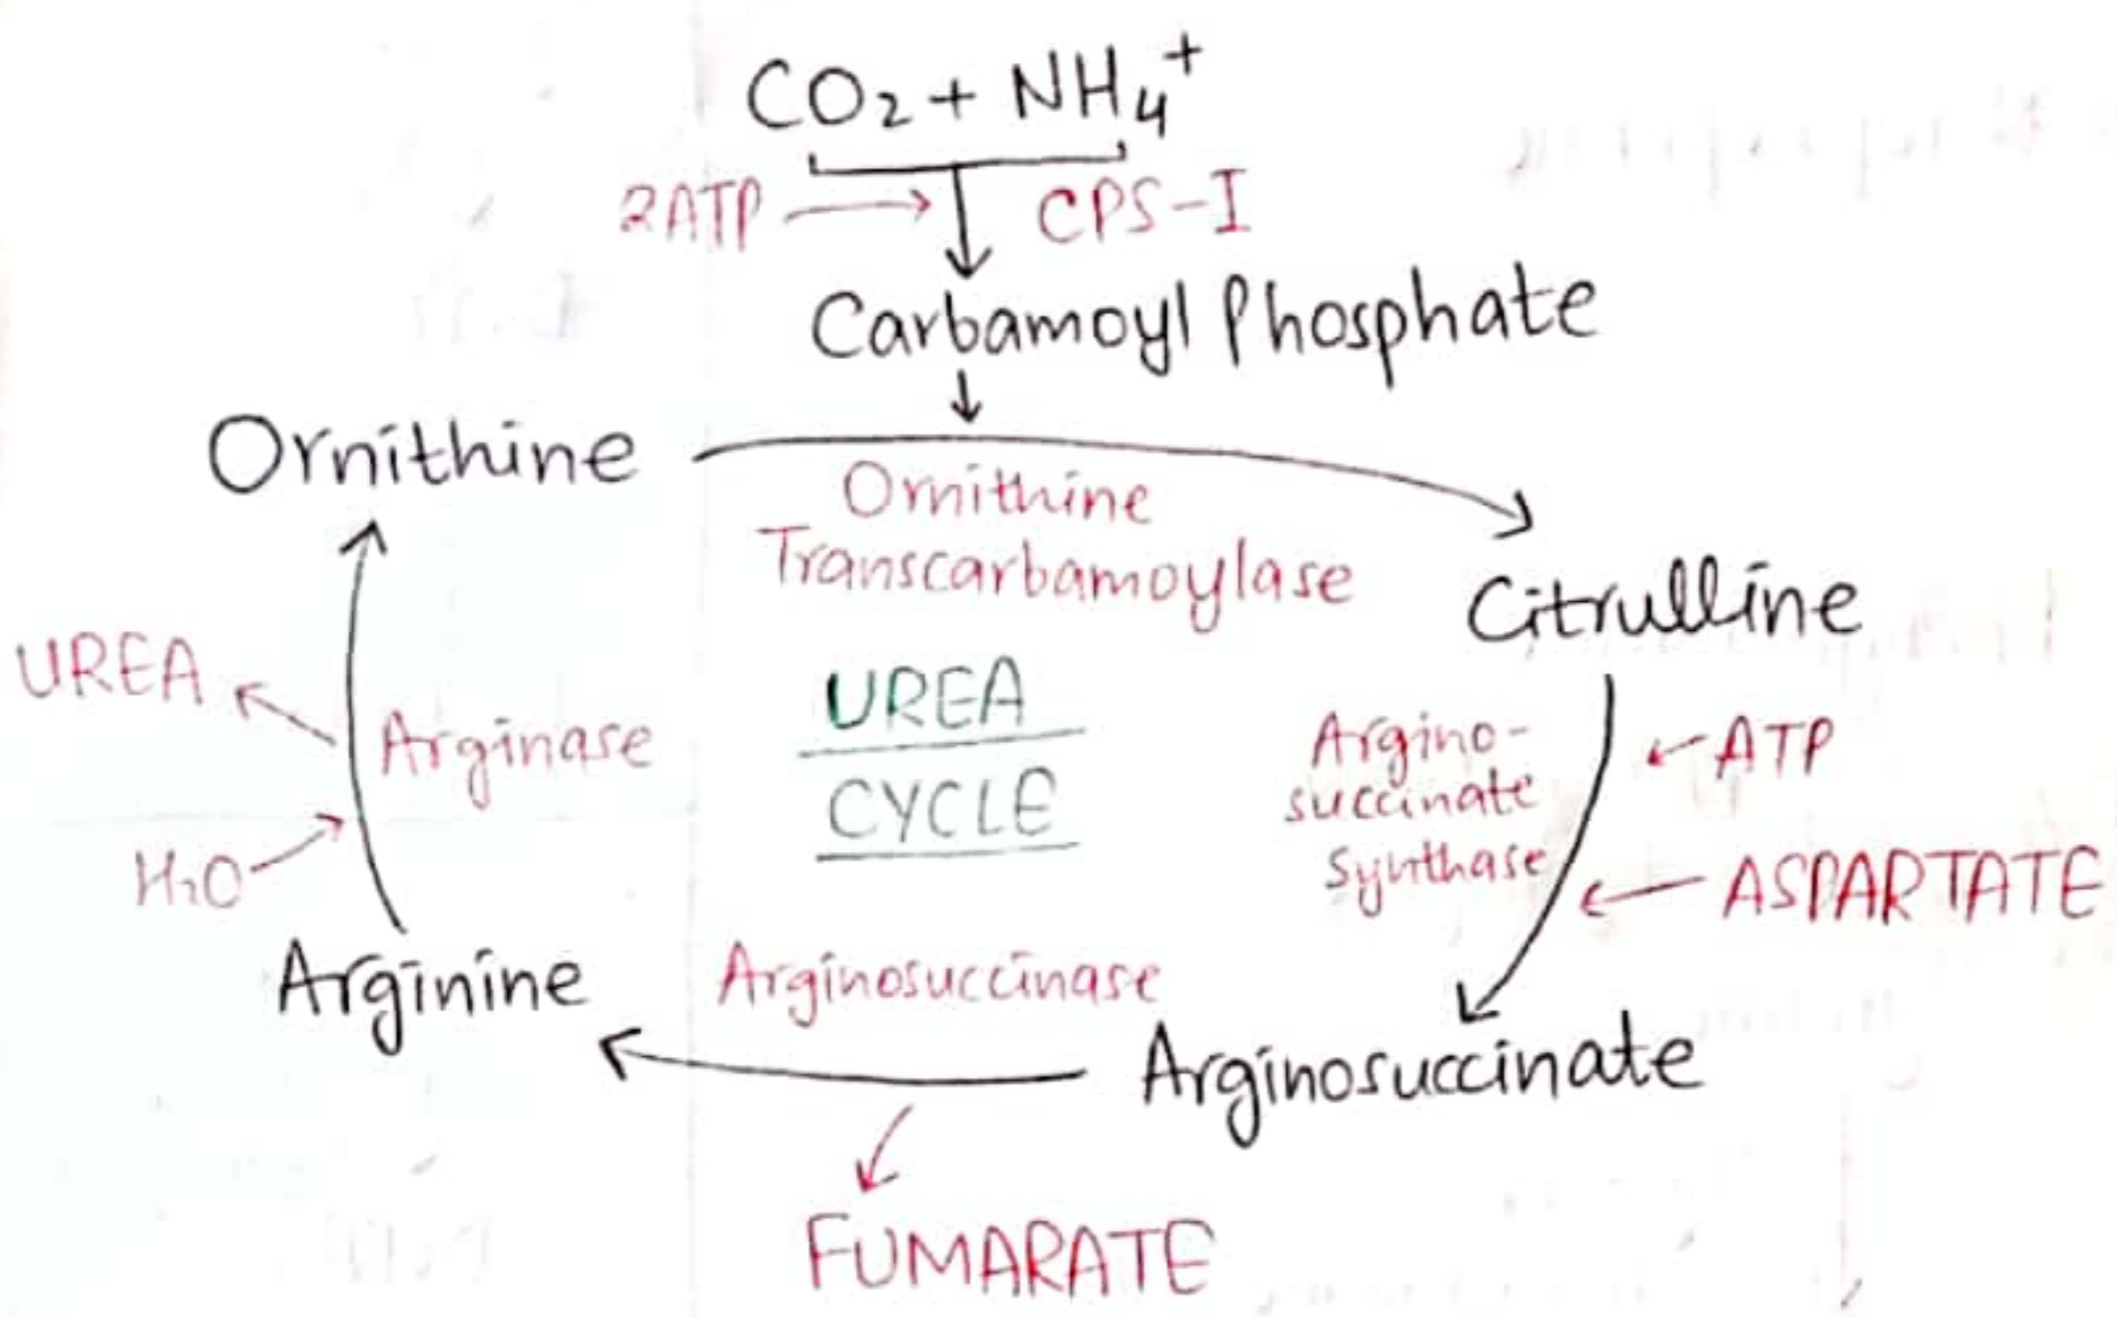 CO₂ + NH₄⁺
2ATP CPS-I
Carbamoyl Phosphate
Ornithine
Ornithine
Transcarbamoylase
Citrulline
UREA
Arginase
H₂O
UREA
CYCLE
Argino-
succinate
Synthase
ATP
ASPARTATE
Arginine
Arginosuccinase
Arginosuccinate
FUMARATE